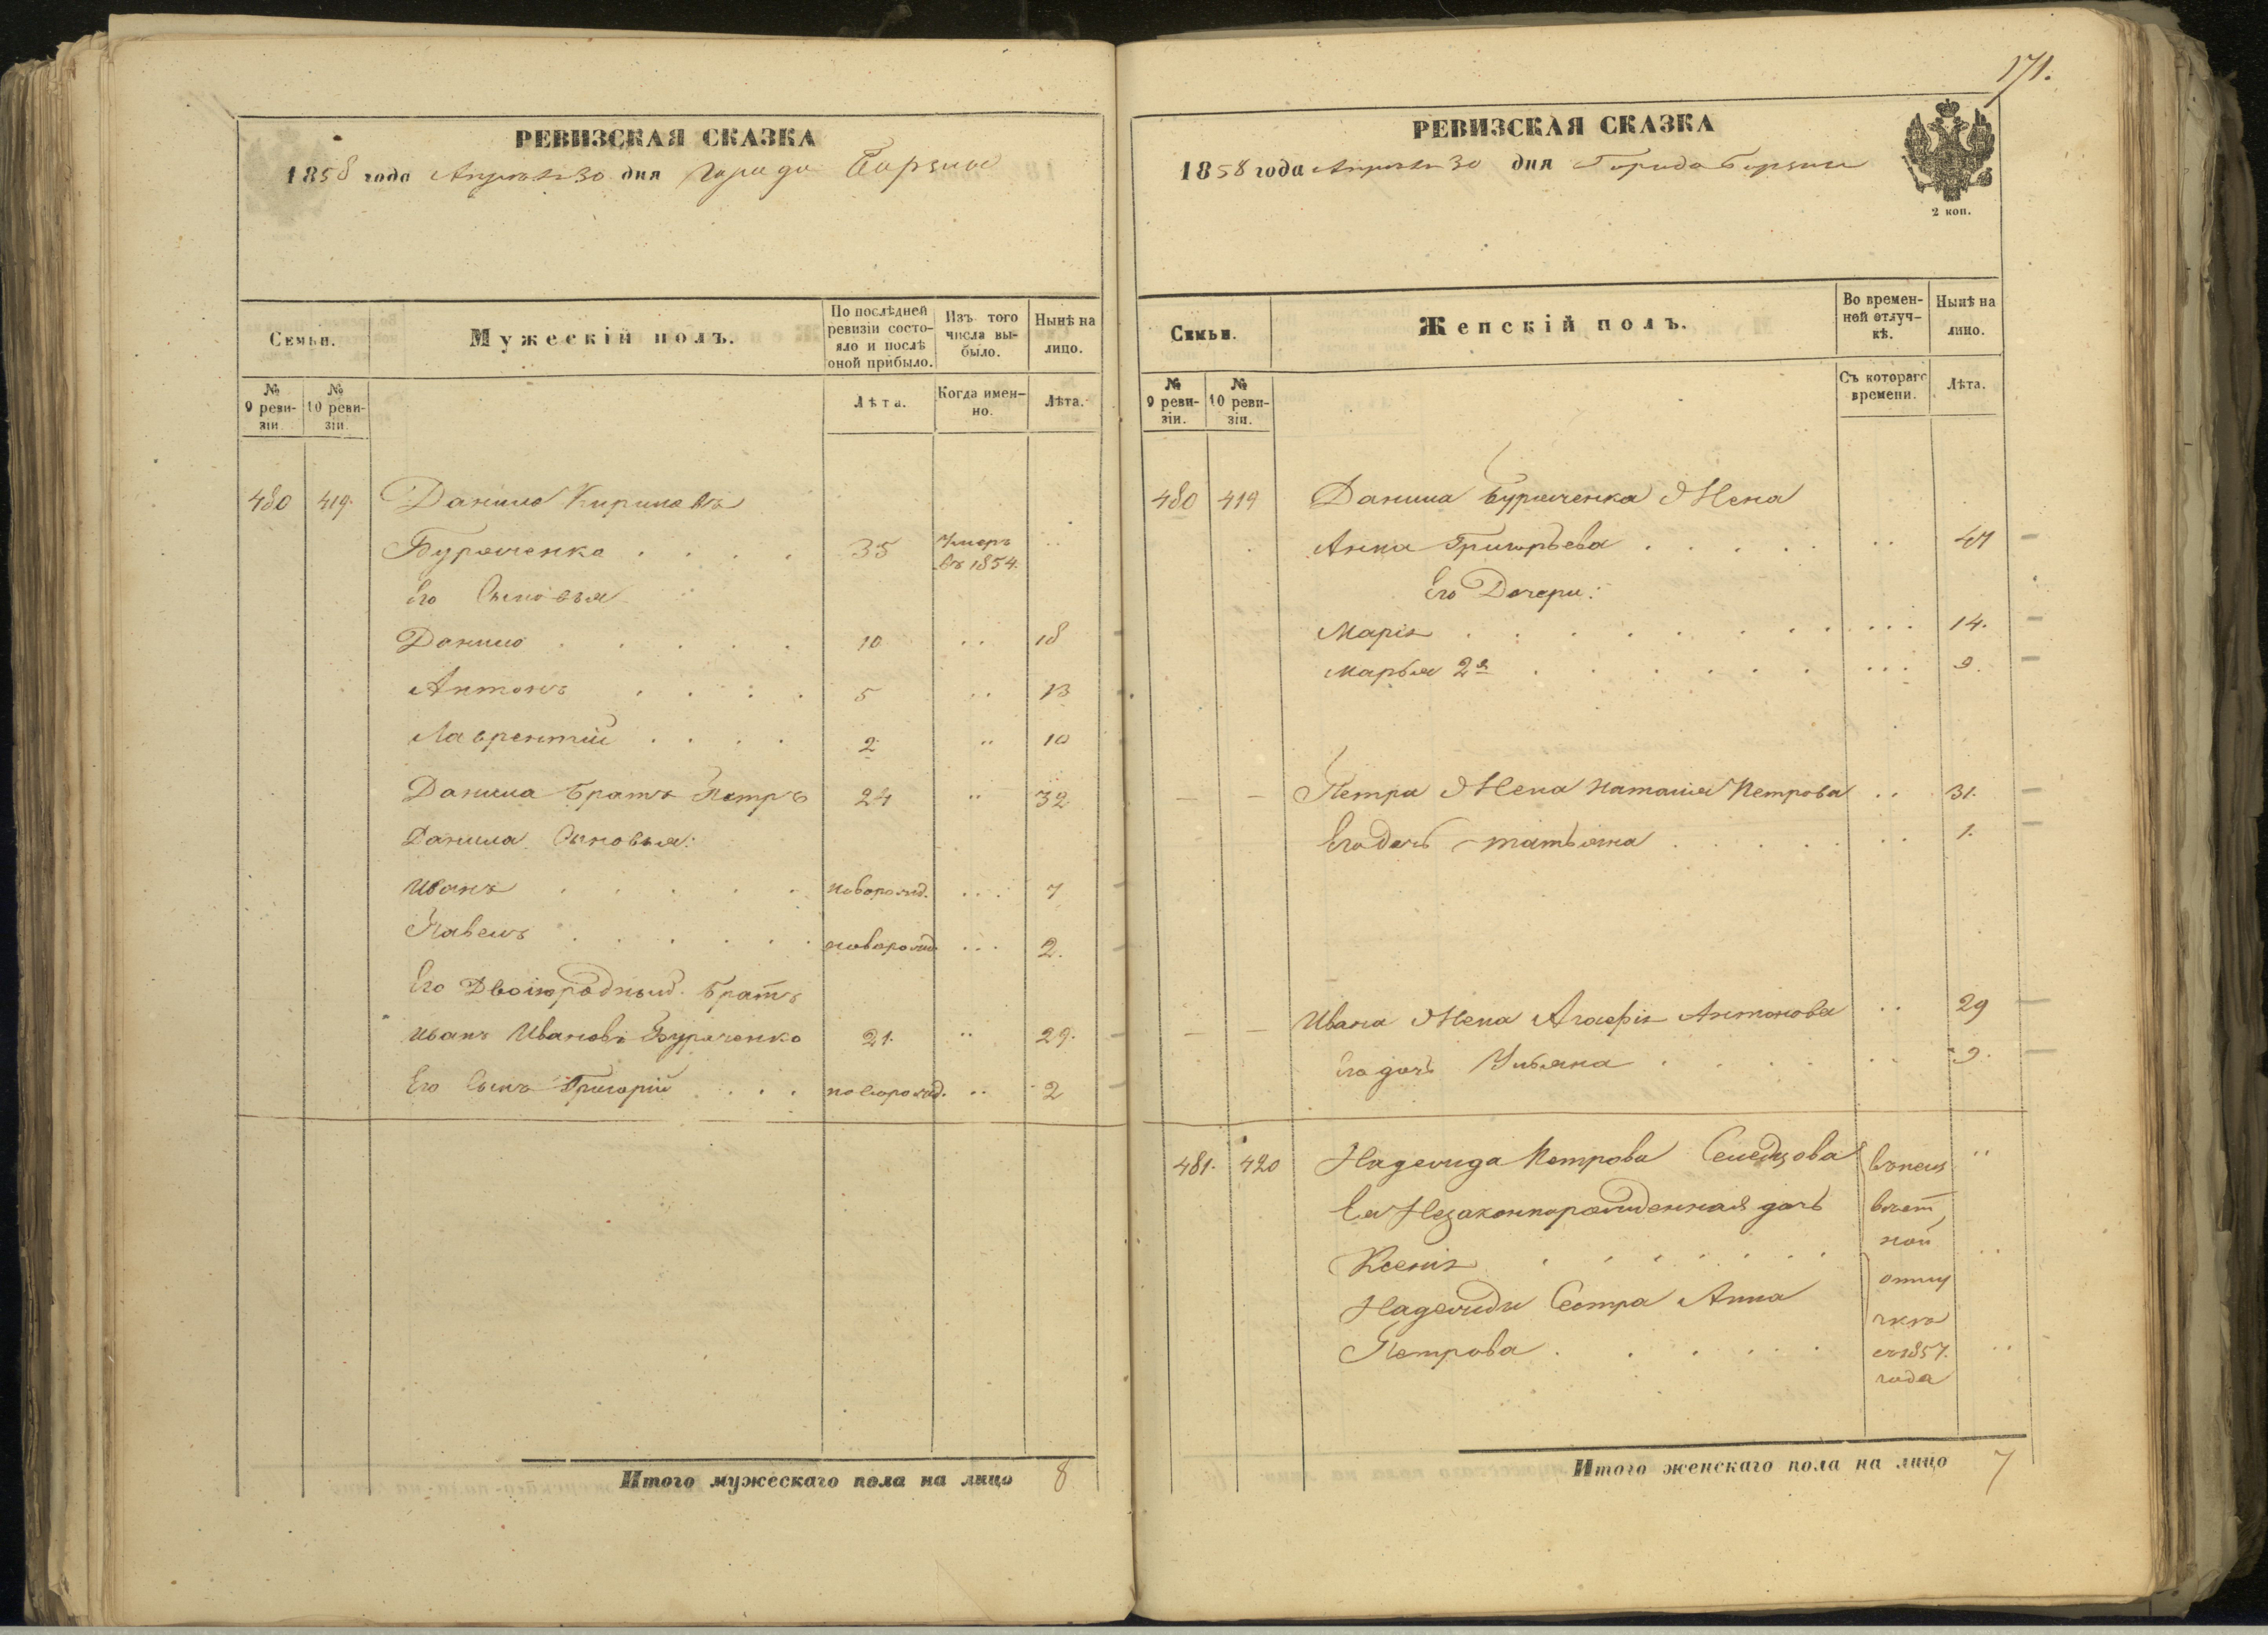 РЕВИЗСКАЯ СКАЗКА
1858 года Апреля 30 дня Города Борзны
Семьи.
Мужескій полъ.
По послѣдней ревизіи состояло и послѣ оной прибыло.
Изъ того числа выбыло.
Нынѣ на лицо.
№ 9 ревизіи.
№ 10 ревизіи.
Лѣта.
Когда именно.
Лѣта.
480 419. Данило Кириловъ
Бураченко . . . . 35 Умеръ въ 1854.
Его Сыновья
Данило . . . . . 10 . . 18
Антонъ . . . . 5 . . 13
Лаврентій . . . . 2 . . 10
Данила братъ Петръ 24 . . 32
Данила Сыновья:
Иванъ . . . . . новорожд. . . . 7
Павелъ . . . . . . новорожд. . . . 2.
Его Двоюродный братъ
Иванъ Ивановъ Бураченко 21. . . 29.
Его Сынъ Григорій . . . новорожд. . . 2
Итого мужескаго пола на лицо 8
171.
РЕВИЗСКАЯ СКАЗКА
1858 года Апреля 30 дня Города Борзны
2 коп.
Семьи.
Женскій полъ.
Во временной отлучкѣ.
Нынѣ на лицо.
№ 9 ревизіи.
№ 10 ревизіи.
Съ котораго времени.
Лѣта.
480 419 Данила Бураченка Жена
Анна Григорьева . . . . . . . 47
Его Дочери:
Марія . . . . . . . . . . . 14.
Марья 2я . . . . . . . . . 9.
Петра Жена Наталія Петрова . . 31.
Его дочь Татьяна . . . . . . . 1.
Ивана Жена Агафія Антонова . . 29
Его дочь Ульяна . . . . . . 9.
481. 420 Надежда Петрова
Ея Незаконнорожденная дочь
Ксенія . . . . . . .
Надежды Сестра Анна
Петрова . . . . . .
отлу
чкѣ
съ 1857.
года
Итого женскаго пола на лицо 7